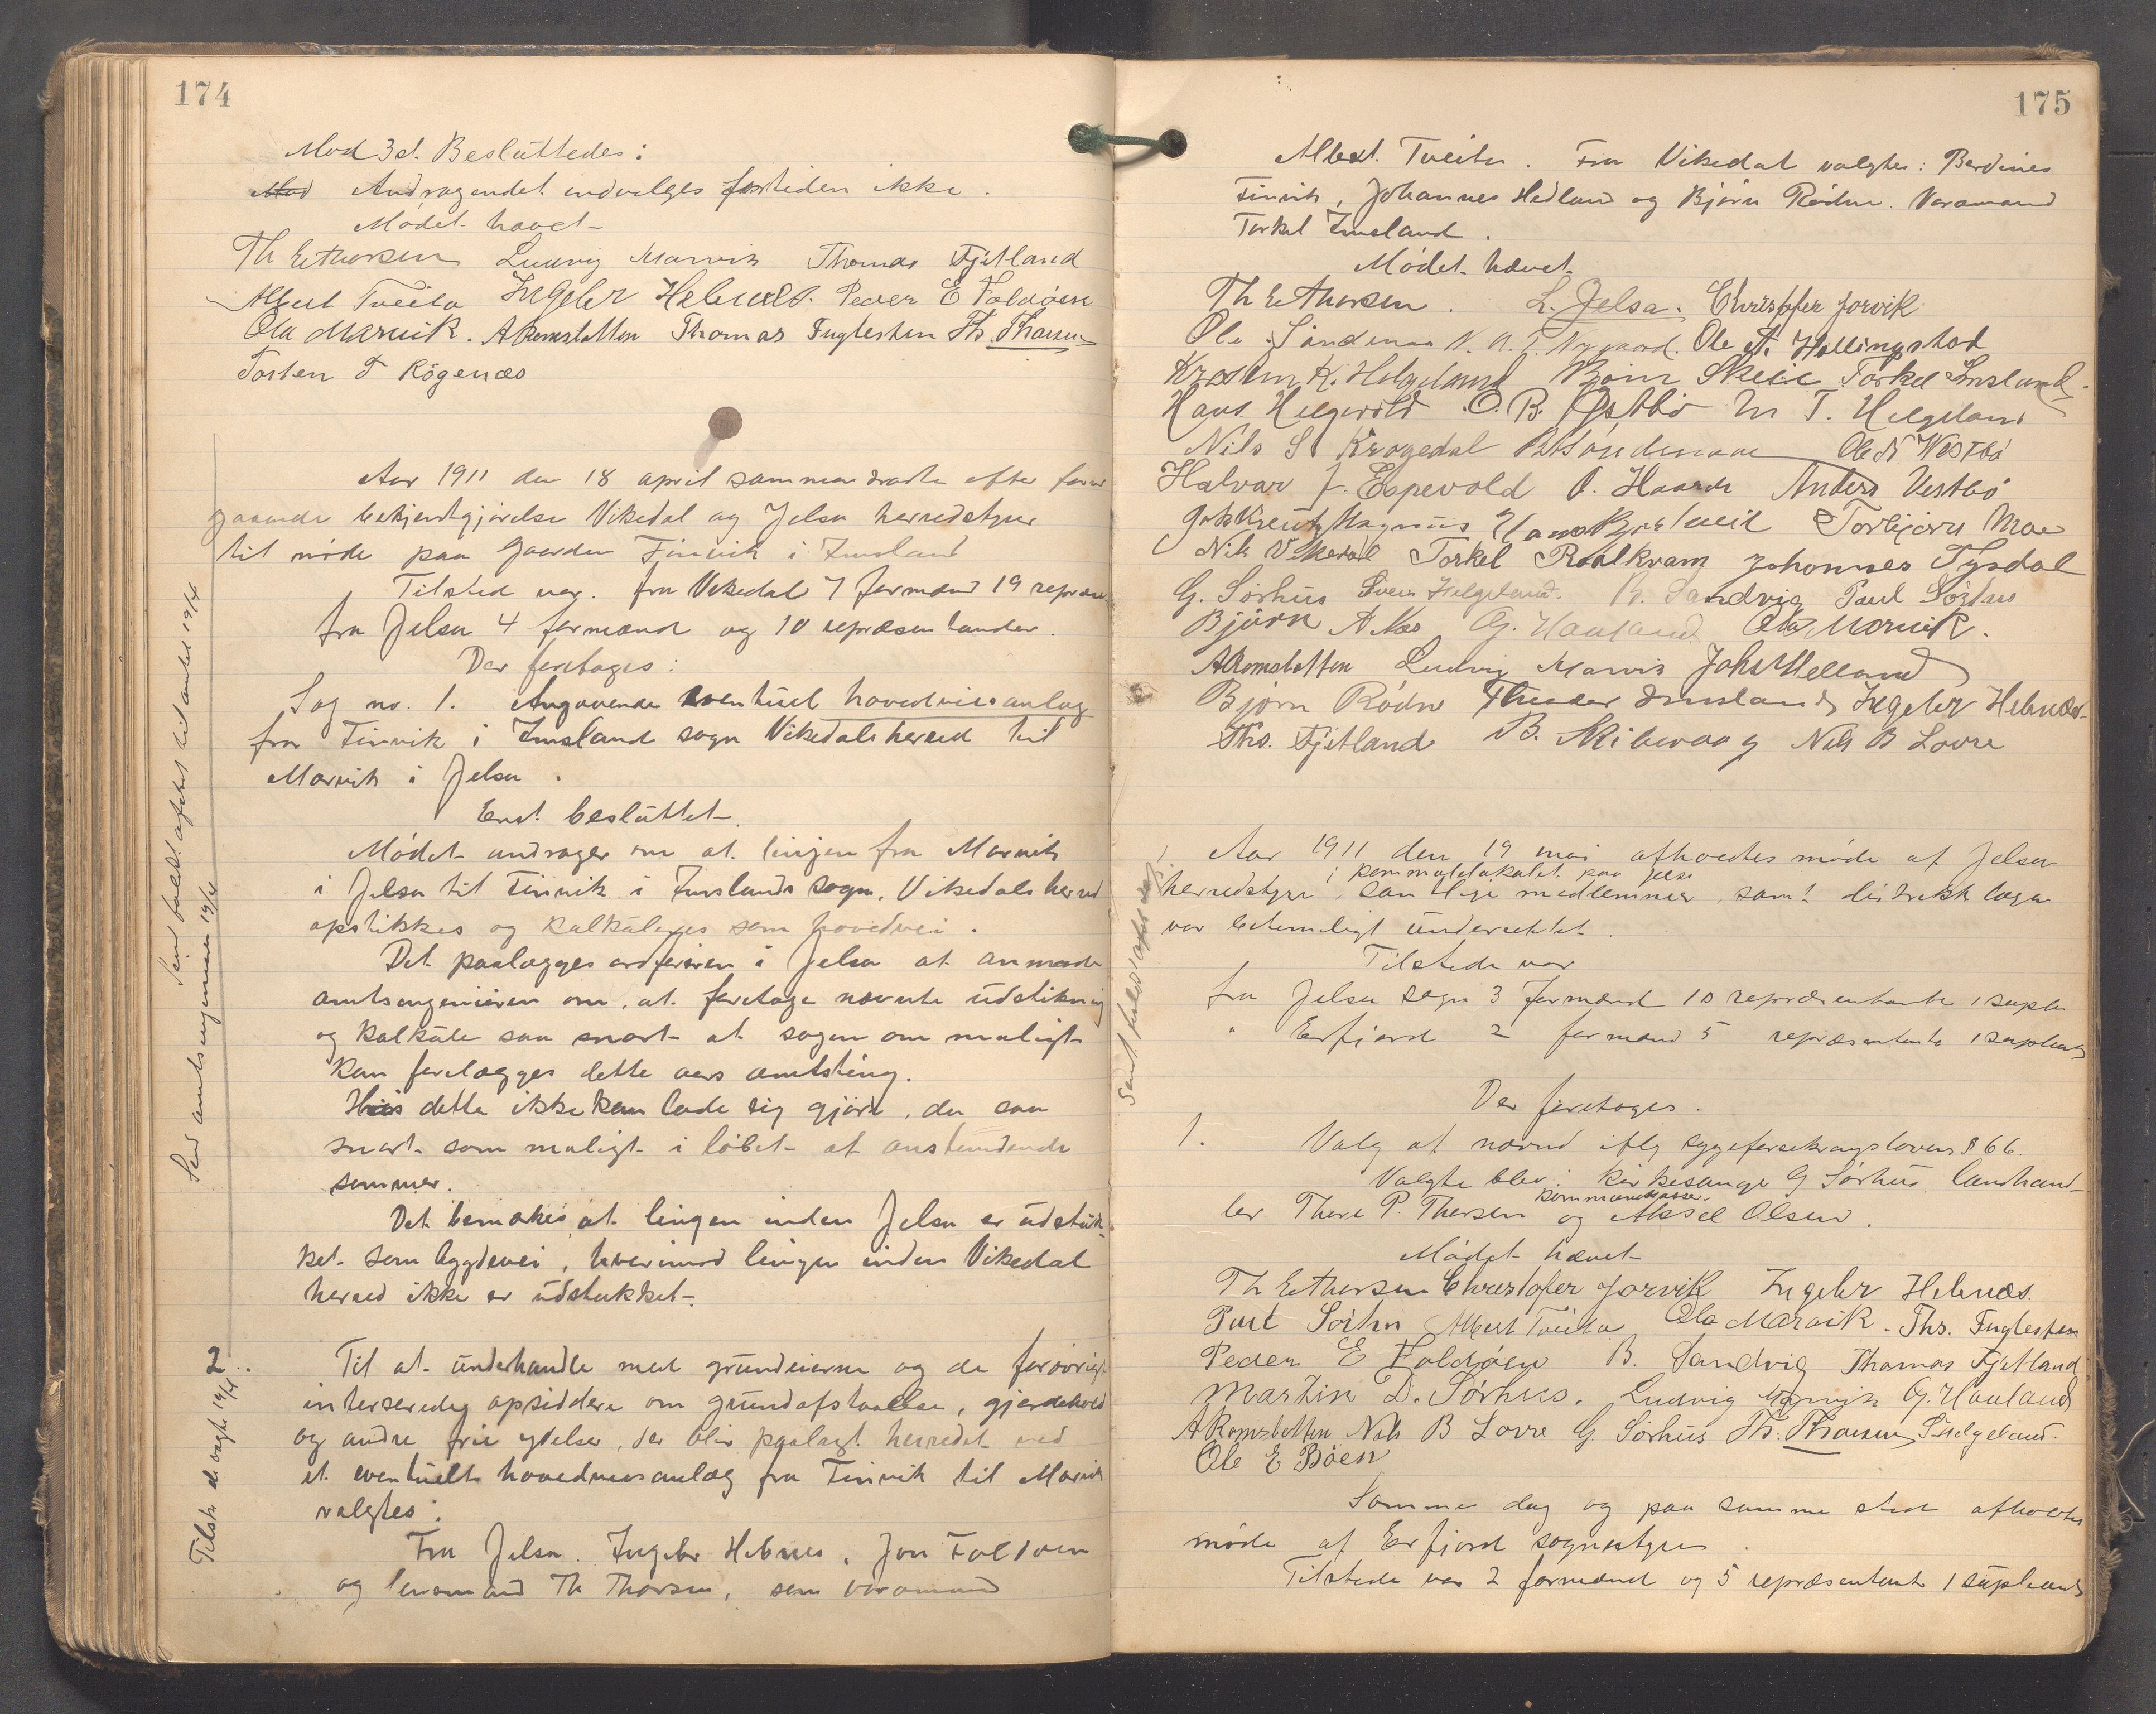 174
Mod 3 st. Besluttedes:
Mod Andragendet indvelges fortiden ikke.
Mødet hævet
Th E Thorsen Ludvig Marvik Thomas Fjetland
Albert Tveita Ingebr Hebnes. Peder E Foldøen
Ola Marvik. A Romsbotten Thomas Fuglesten Th. Thorsen
Torsten T Røgenæs
Aar 1911 den 18 april sammentraadte efter forud
gaaende bekjendtgjørelse Vikedal og Jelsa herredstyrer
til møde paa gaarden Finvik i Imsland
Tilsted var. fra Vikedal 7 formænd 19 repræs
fra Jelsa 4 formænd og 10 repræsentanter.
Der foretoges:
Sag no. 1. Angaaende eventuel hovedveisanlæg
fra Finvik i Imsland sogn Vikedals herred til
Marvik i Jelsa.
Enst. besluttet.
Mødet andrager om at linjen fra Marvik
i Jelsa til Finvik i Imslands sogn, Vikedals herred
opstikkes og kalkuleres som hovedvei.
Det paalægges ordføreren i Jelsa at anmode
amtsingeniøren om, at foretage nævnte udstikning
og kalkule saa snart at sagen om muligt
kan forelægges dette aars amtsting.
Hvis dette ikke kan lade sig gjøre, da saa
snart som muligt i løbet af anstundende
sommer.
Det bemærkes, at lingen inden Jelsa er udstuk-
ket som bygdevei, hvorimod lingen inden Vikedal
herred ikke er udstukket.
2. Til at underhandle med grundeierne og de forøvrigt
interserede opsiddere om grundafstaaelse, gjerdehold
og andre frie ydelser, der blir paalagt herredet ved
et eventuelt hovedveisanlæg fra Finvik til Marvik
valgtes:
Fra Jelsa. Ingebr Hebnes, Jon Foldøen
og lensmand Th Thorsen, som varamand
175
Albert Tveita. Fra Vikedal valgtes: Berdines
Finvik, Johannes Hedland og Bjørn Rødne. Varamand
Torkel Imsland.
Mødet hævet.
Th E Thorsen. L. Jelsa. Christofer Jorvik
Ole Søndenaa N. A. T. Nygaard. Ole A. Hallingstad
K. Helgeland Bjørn Skeie Torkel Imsland.
Hans Hegerold O. B. Østbø M T. Helgeland
Nils S Kragedal B Søndenaa Ole N Westbø
Halvar J. Espevold O. Haarde Anders Vestbø
Magnus Hans Torbjørn Moe
Nils Vikedal Torkel Roalkvam Johannes Tysdal
G. Sørhus Svein Helgeland. B. Sandvig Paul Sørhus
Bjørn A Næs G. Hauland Ola Marvik.
A Romsbotten Ludvig Marvik Johs Helland
Bjørn Rødne Theodor Imsland Ingebr Hebnes
Ths. Fjetland B. Skibevaag Nils B Lovre
Aar 1911 den 19 mai afholdtes møde af Jelsa
i kommunelokalet paa Jelsa
herredstyre, samtlige medlemmer, samt distrikts lægen
var betimeligt underrettet.
Tilstede var
fra Jelsa sogn 3 formænd 10 repræsentanter 1 suplea
" Erfjord 2 formænd 5 repræsentante 1 supleant
Der foretoges.
1. Valg af nævnd iflg sygeforsikringslovens § 66.
Valgte blev: kirkesanger G Sørhus landhand-
kommunekasser.
ler Thore P. Thorsen og Aksel Olsen.
Mødet hævet
Th E Thorsen Christofer Jorvik Ingebr Hebnæs.
Paul Sørhus Albert Tveita Ola Marvik. Ths. Fuglesten
Peder E Foldøen B. Sandvig Thomas Fjetland
Martin D. Sørhus. Ludvig Marvik G. Hauland
A Romsbotten Nils B Lovre G. Sørhus Th. Thorsen S Helgeland.
Ole E Bøen
Samme dag og paa samme sted afholdtes
møde af Erfjord sognestyre.
Tilstede var 2 formænd og 5 repræsentante 1 supleant